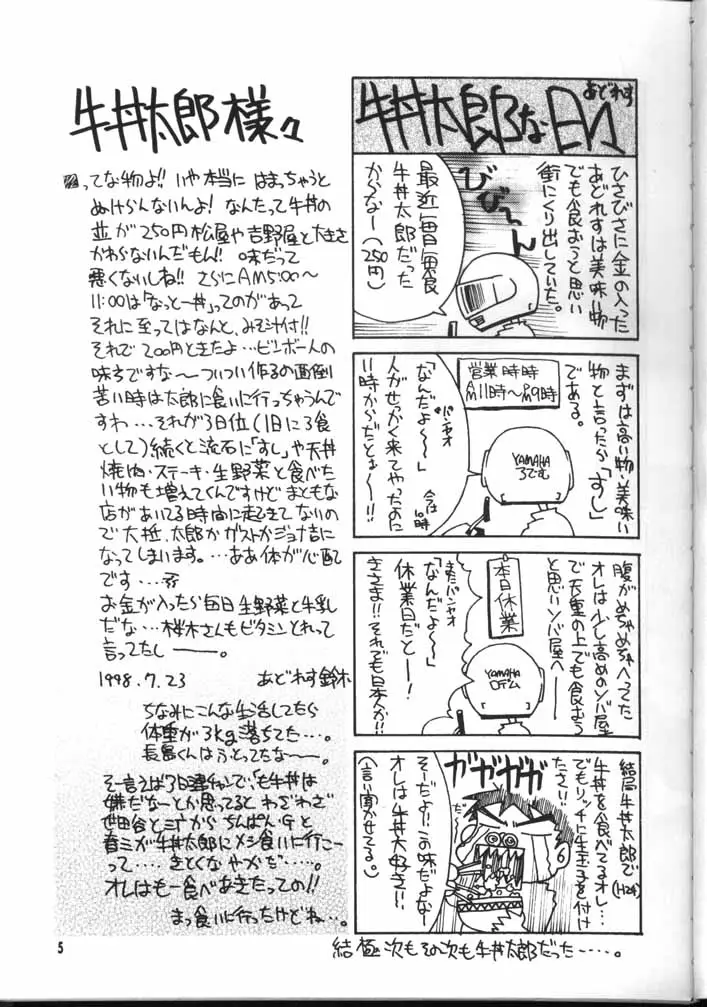 牛丼太郎なEM
あどれす
ひさびさに金の入った
あどれすは美味い物
でも食おうと思い
街にくり出していた。
びびーん
最近毎日毎食
牛丼太郎だった
からなー(250円)
まずは高い物・美味い
物と言ったら「すし」
である。
営業時時
AM11時〜PM9時
「なんだよ〜〜」
バンヤオ
人がせっかく来てやったのに
11時からだとぉ〜!!
今は10時
YAMAHA
ろでむ
腹がめちゃめちゃへってた
オレは少し高めのソバ屋
で天重の上でも食おう
と思いソバ屋へ──
本日休業
またバンヤオ
「なんだよ〜〜」
休業日だと─!
きさま!!それでも日本人か!!
YAMAHA
ロデム
結局牛丼太郎で
牛丼を食べてるオレ…
でもリッチに生玉子を付け
たさ!!
ガガガガ
そーだよ!!この味だよな!
オレは牛丼大好き!!
(言い聞かせてる。)
結極次もその次も牛丼太郎だった……。
牛丼太郎様々
ってな物よ!! いや本当にはまっちゃうと
ぬけらんないんよ! なんたって牛丼の
並が250円松屋や吉野屋と大きさ
かわらないんだもん!! 味だって
悪くないしね!! さらにAM5:00〜
11:00は「なっとー丼」ってのがあって
それに至ってはなんと、みそ汁付!!
それで200円ときたよ…ビンボー人の
味方ですな〜ついつい作るの面倒
苦い時は太郎に食いに行っちゃうんで
すわ…それが3日位(1日に3食
として)続くと流石に「すし」や天丼
焼肉・ステーキ・生野菜と食べた
い物も増えてくんですけどまともな
店があいてる時間に起きてないの
で大抵、太郎かガストかジョナ吉に
なってしまいます。…ああ体が心配
です…
お金が入ったら毎日生野菜と牛乳
だな…桜木さんもビタミンとれって
言ってたし───。
1998.7.23 あどれす鈴木
ちなみにこんな生活してたら
体重が3kg落ちてた…。
長島くんはふとってたな〜〜。
そー言うば3日連チャンで、「も牛丼は
嫌だなーとか思ってると わざわざ
世田谷と三丁から ちんぱん・Gと
春ミが牛丼太郎にメシ食いに行こー
って……きとくなやからだ……。
オレはもー食べあきたっての!!
まっ食いに行ったけどね…。
5